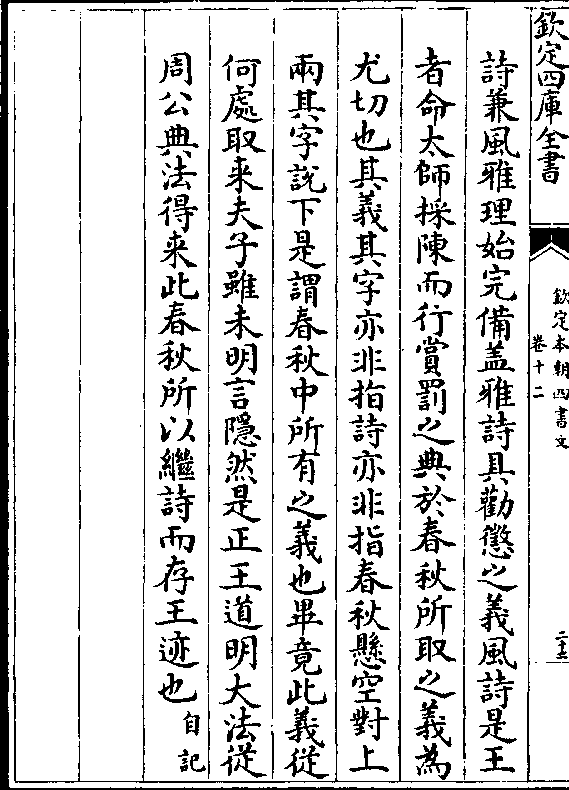 欽定四庫全書
欽定本朝四書文
卷十二
詩兼風雅理始完備盖雅詩具勸懲之義風詩是王
者命太師採陳而行賞罰之典於春秋所取之義為
尤切也其義其字亦非指詩亦非指春秋懸空對上
兩其字說下是謂春秋中所有之義也畢竟此義從
何處取来夫子雖未明言隱然是正王道明大法從
周公典法得来此春秋所以繼詩而存王迹也自記